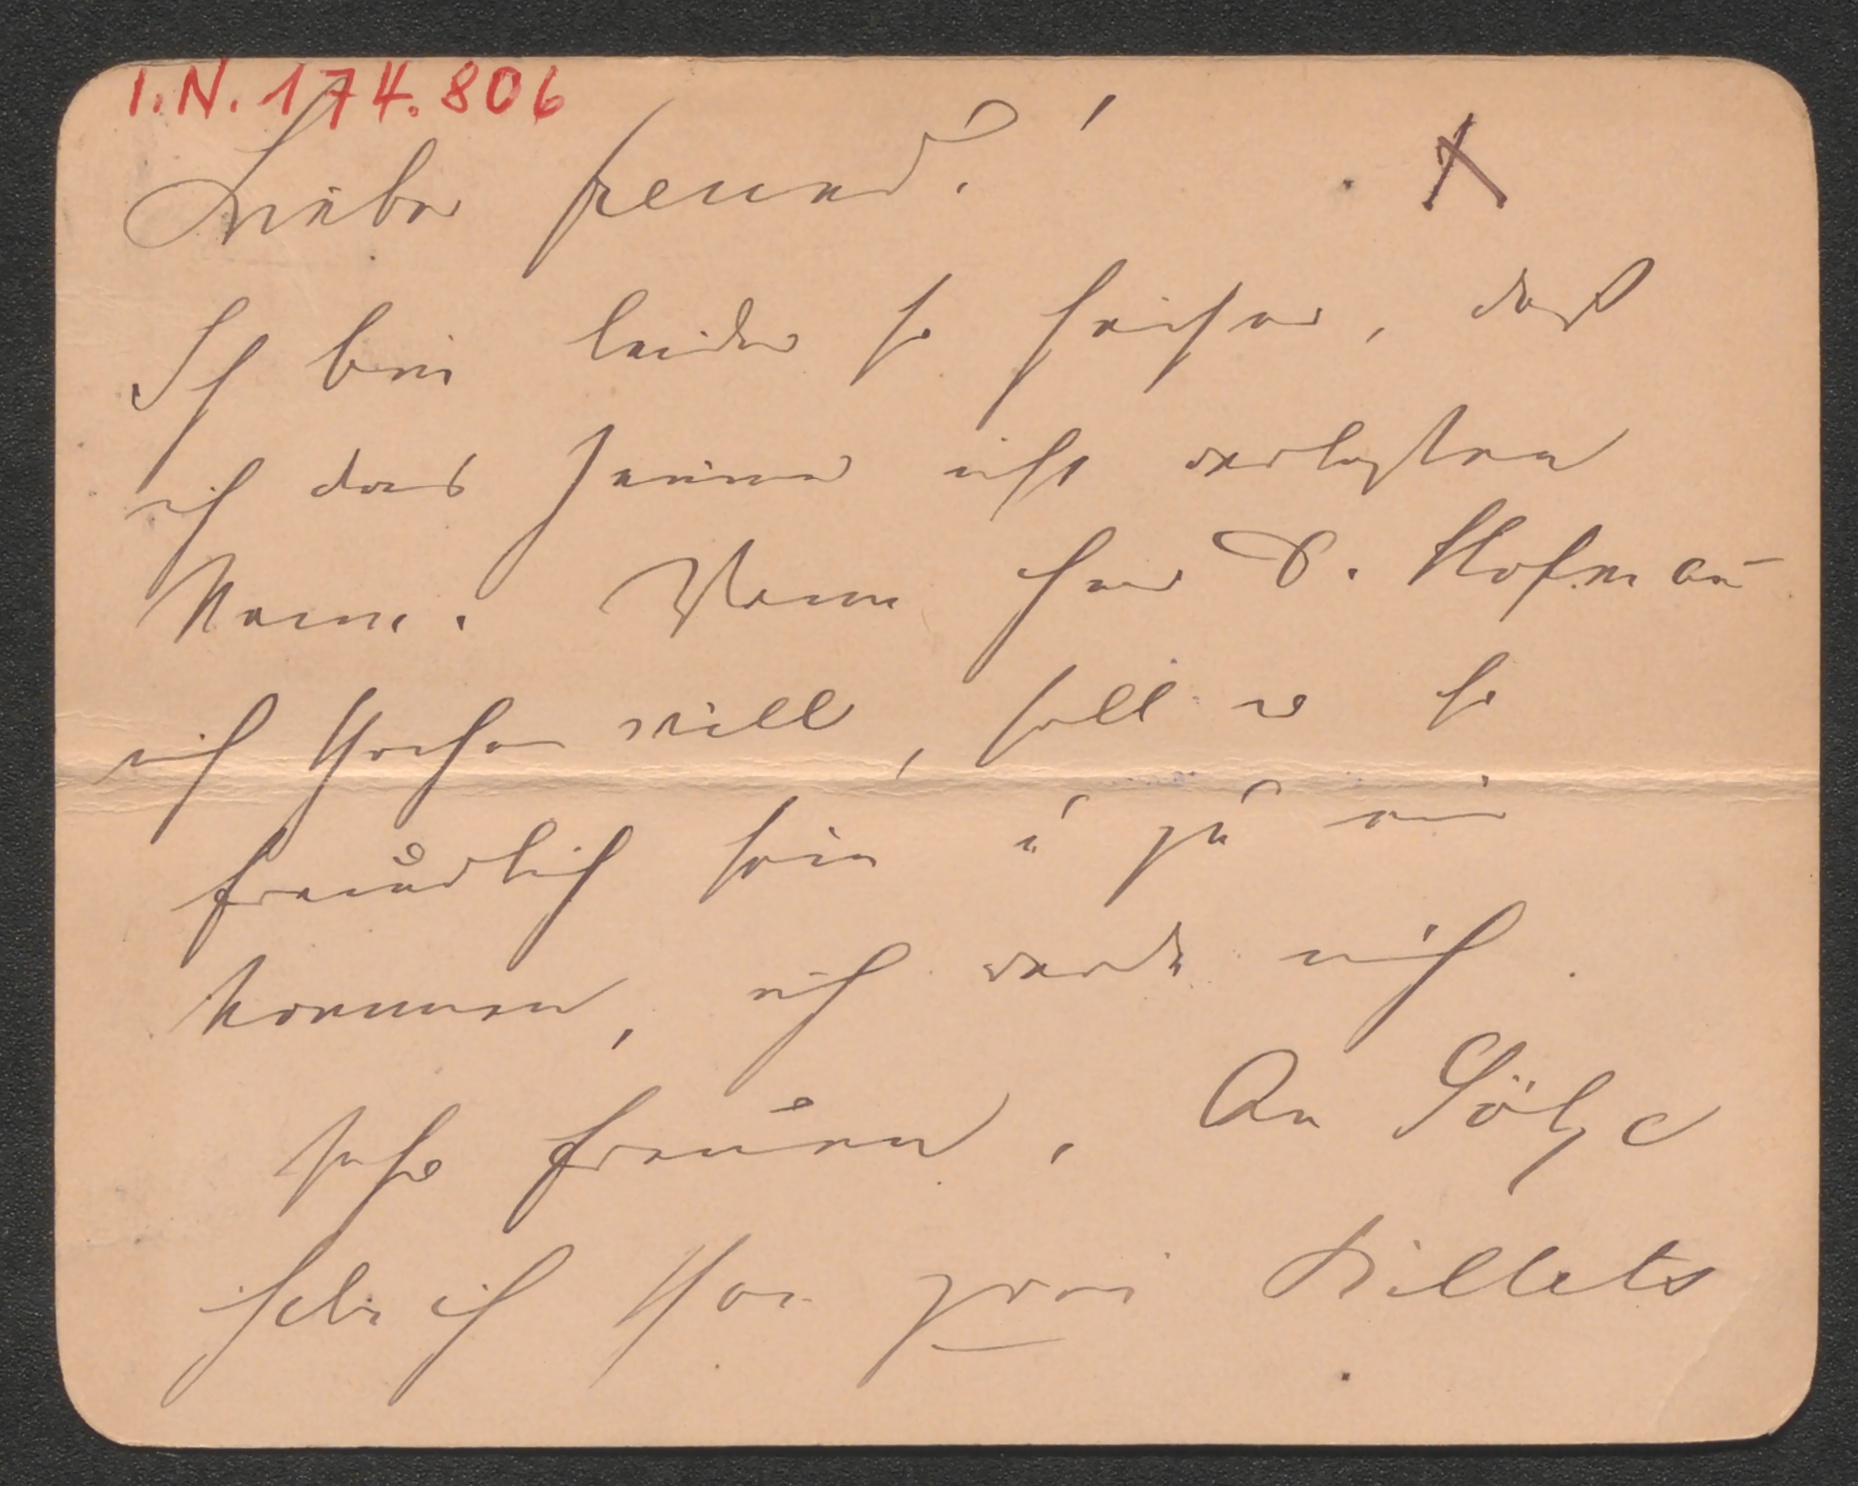 I.N. 174.806
Lieber Freund!
Ich bin leider so heiser, daß
ich das Zimmer nicht verlassen
kann. Wenn Herr D. Hofmañ
mich sprechen will, soll er so
freundlich sein u zu mir
kommen, ich werde mich
sehr freuen. An Gölz
schrieb ich schon zwei Billets